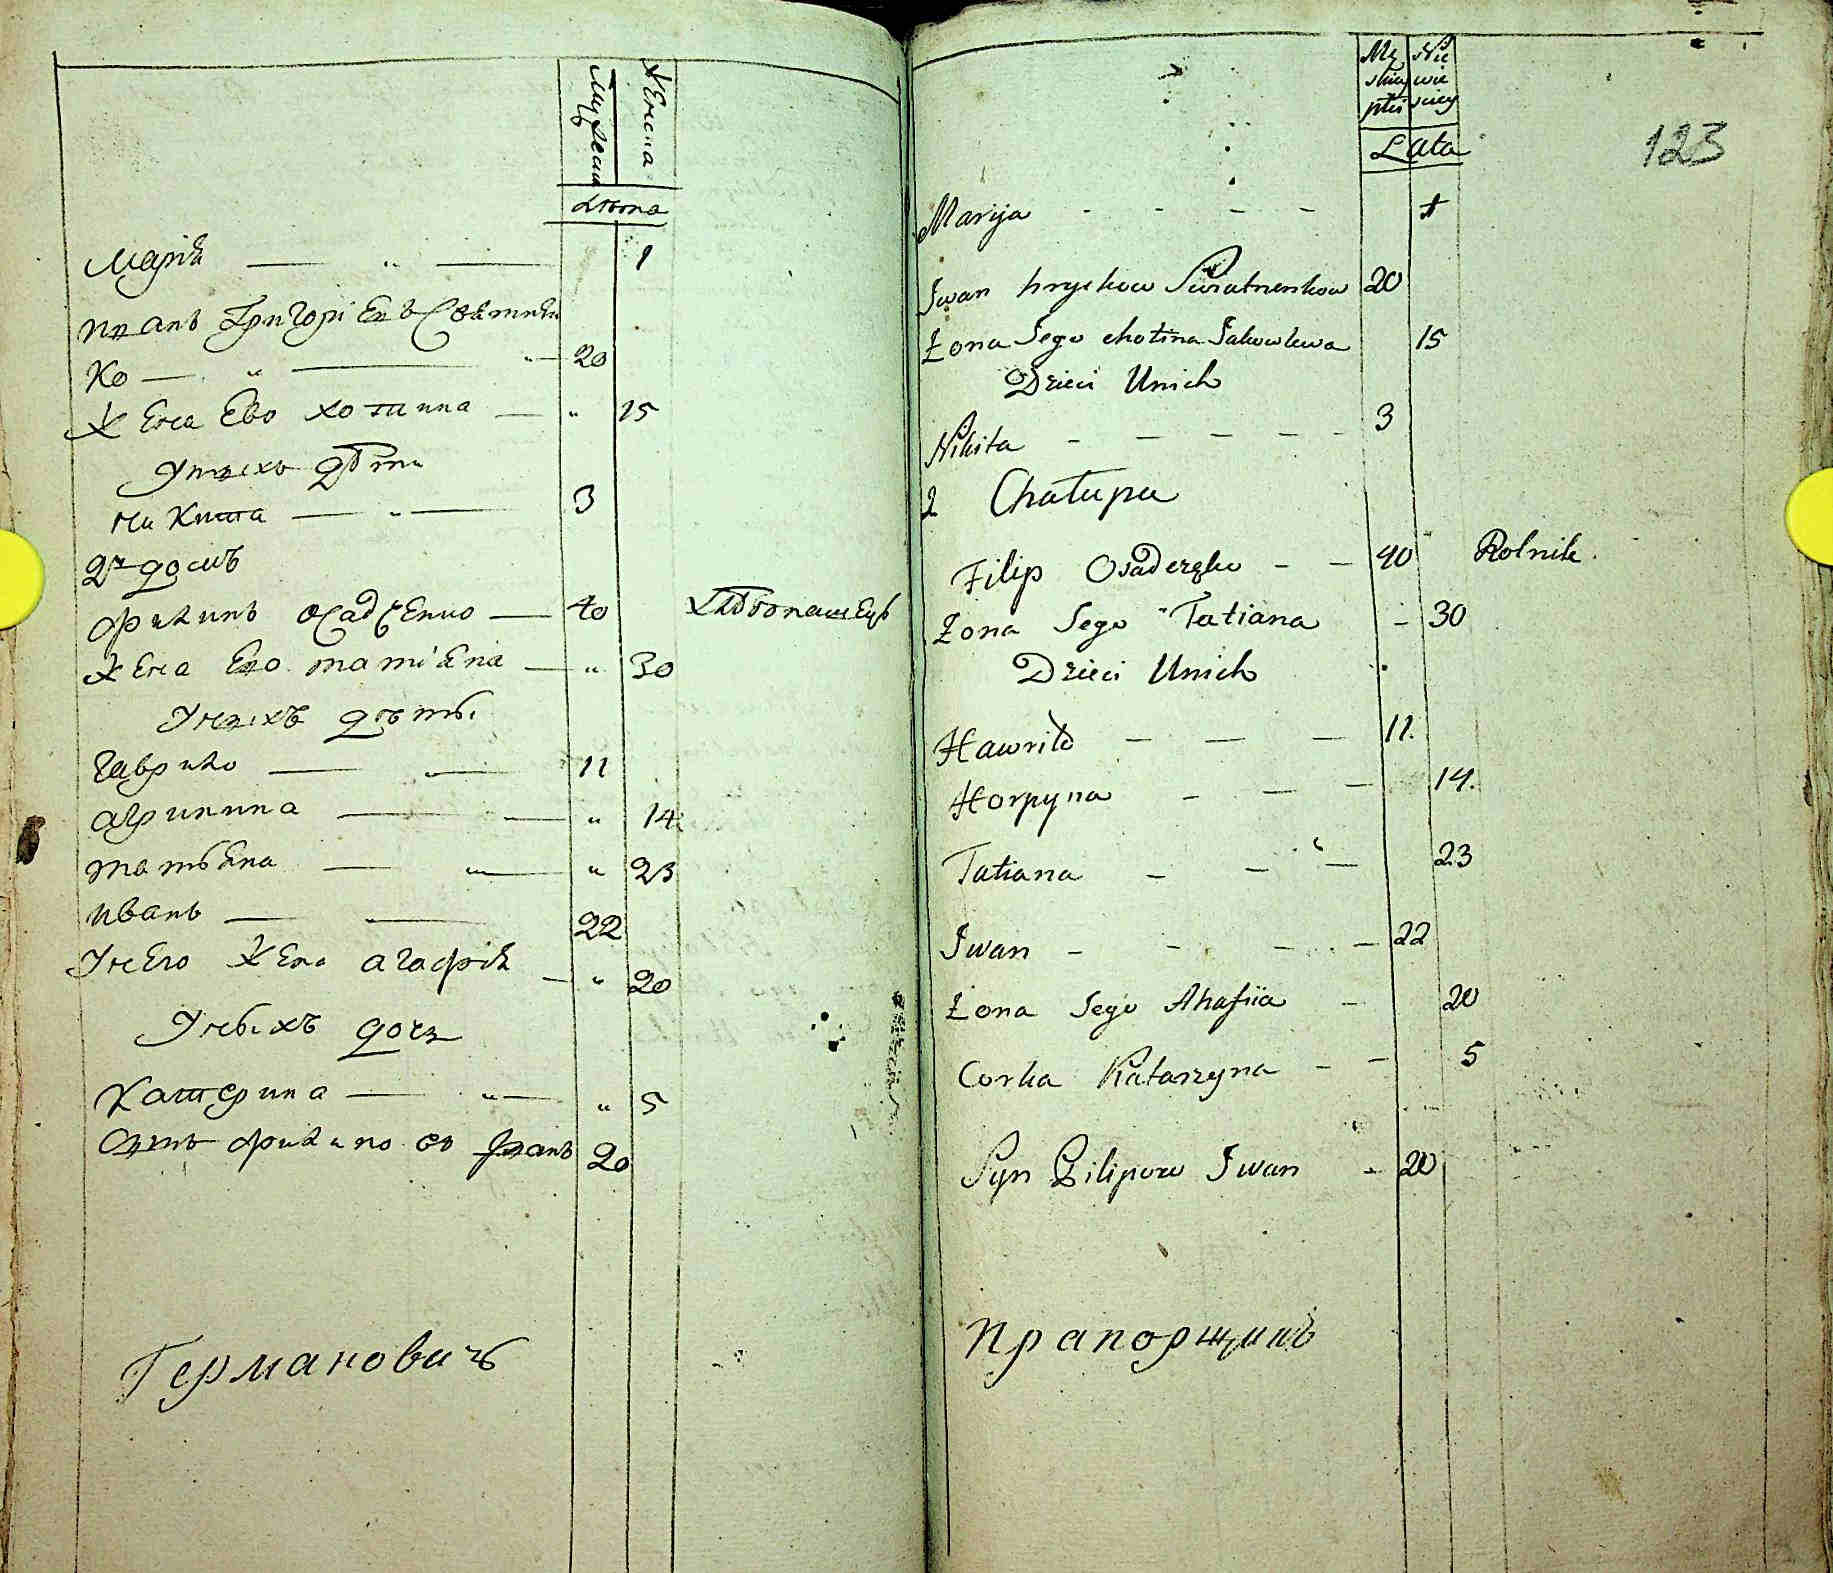 Мужеска
Женска
Лѣта
Марія 1
Иванъ Григоріевъ Сватненко 20
Жена Ево хотинна 15
Унихъ дѣти
Никита 3
2й домъ
Филипъ осадченко 40 Хлѣбопашецъ
Жена Ево татіяна 30
Унихъ дѣти
Гаврило 11
агрипина 14
татьяна 23
иванъ 22
Унего Жена агафія 20
Унихъ дочь
Катерина 5
Сынъ филипо въ Иванъ 20
Германовичъ
Męskiey płci
Niewieściey
Lata
123
Marija 1
Iwan hryckow 20
Żona Jego chotina Jakowlewa 15
Dzieci Unich
Nikita 3
2 Chałupa
Filip Osadczęko 40 Rolnik.
Żona Jego Tatiana 30
Dzieci Unich
Hawriło 11.
Horpyna 14.
Tatiana 23
Iwan 22
Żona Jego Ahafiia 20
Corka Katarzyna 5
Syn Filipow Iwan 20
Прапорщикъ